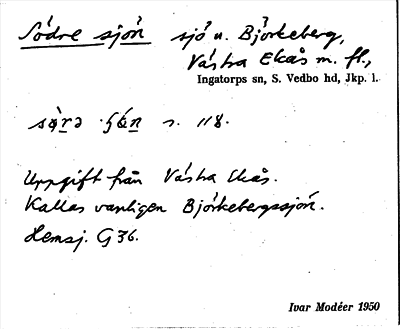 Södre sjön sjö u. Björkeberg,
Västra Ekås m. fl.,
Ingatorps sn, S. Vedbo hd, Jkp. l.
s. 118.
Uppgift från Västra Ekås.
Kallas vanligen Björkebergssjön.
Hemsj. G 36.
Ivar Modéer 1950